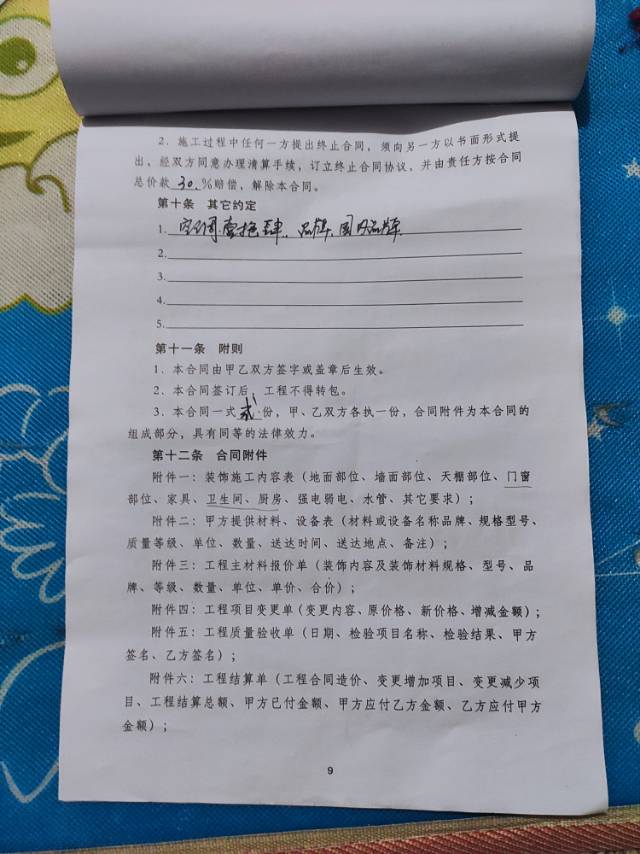 2. 施工过程中任何一方提出终止合同，须向另一方以书面形式提
出，经双方同意办理清算手续，订立终止合同协议，并由责任方按合同
总价款 30 %赔偿，解除本合同。
第十条 其它约定
1. 空调 品牌、国内品牌
2.
3.
4.
5.
第十一条 附则
1. 本合同由甲乙双方签字或盖章后生效。
2. 本合同签订后，工程不得转包。
3. 本合同一式 贰 份，甲、乙双方各执一份，合同附件为本合同的
组成部分，具有同等的法律效力。
第十二条 合同附件
附件一：装饰施工内容表（地面部位、墙面部位、天棚部位、门窗
部位、家具、卫生间、厨房、强电弱电、水管、其它要求）；
附件二：甲方提供材料、设备表（材料或设备名称品牌、规格型号、
质量等级、单位、数量、送达时间、送达地点、备注）；
附件三：工程主材料报价单（装饰内容及装饰材料规格、型号、品
牌、等级、数量、单位、单价、合价）；
附件四：工程项目变更单（变更内容、原价格、新价格、增减金额）；
附件五：工程质量验收单（日期、检验项目名称、检验结果、甲方
签名、乙方签名）；
附件六：工程结算单（工程合同造价、变更增加项目、变更减少项
目、工程结算总额、甲方已付金额、甲方应付乙方金额、乙方应付甲方
金额）；
9